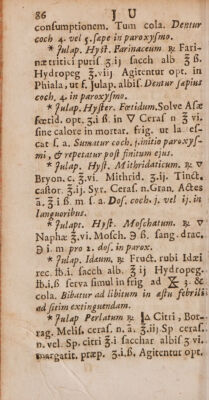 86 J U
consumptionem. Tum cola. Dentur
coch 4. vel 5. sæpe in paroxysmo.
* Julap. Hyst. Farinaceum ℞ Fari-
næ tritici putif. ℥ij sacch alb ℥ ß.
Hydropeg ℥.viij Agitentur opt. in
Phiala, ut s. Julap. albis. Dentur sæpius
coch. 4. in paroxysmo.
* Julap. Hyster. Fœtidum. Solve Asæ
fœtid. opt. ʒ.i ß. in ▽ Ceras n ℥ vi.
sine calore in mortar. frig. ut la es-
cat s. a. Sumatur coch. j. initio paroxys-
mi, & repetatur post finitum ejus.
* Julap. Hyst. Mithridaticum. ℞ ▽
Bryon. c. ℥.vi. Mithrid. ʒ.ij. Tinct.
castor. ʒ.ij. Syr. Ceras. n. Gran, Actes
ā. ℥ i ß m s. a. Dos. coch. j. vel ij. in
languoribus.
* Julapt. Hyst. Moschatum. ℞ ▽
Naphæ ℥.vi. Mosch. ℈ ß. sang. drac.
℈ i. m pro 2. dos. in parox.
* Julap. Idæum. ℞ Fruct. rubi Idæi
rec. lb.i. sacch alb. ℥ ij Hydropeg.
lb.i.ß serva simul in frig ad ℥. &
cola. Bibatur ad libitum in æstu febrili
ad sitim extinguendam.
* Julap Perlatum ℞ Citri, Bor-
rag. Meliss. ceras. n. ā. ℥.iij Sp ceras.
n. vel. Sp. citri ℥.i sacchar albis ʒ vi.
margarit. præp. ʒ.i ß. Agitentur opt.